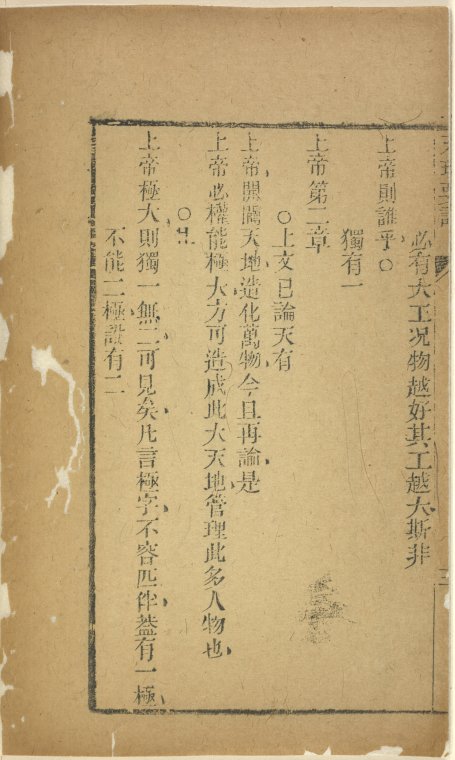 必有大工况物越好其工越大斯非
上帝則誰乎○
獨有一
上帝第二章
○上文已論天有
上帝開闢天地造化萬物今且再論是
上帝必權能極大方可造成此大天地管理此多人物也
○且
上帝極大則獨一無二可見矣凡言極字不容匹伴蓋有一極
不能二極設有二